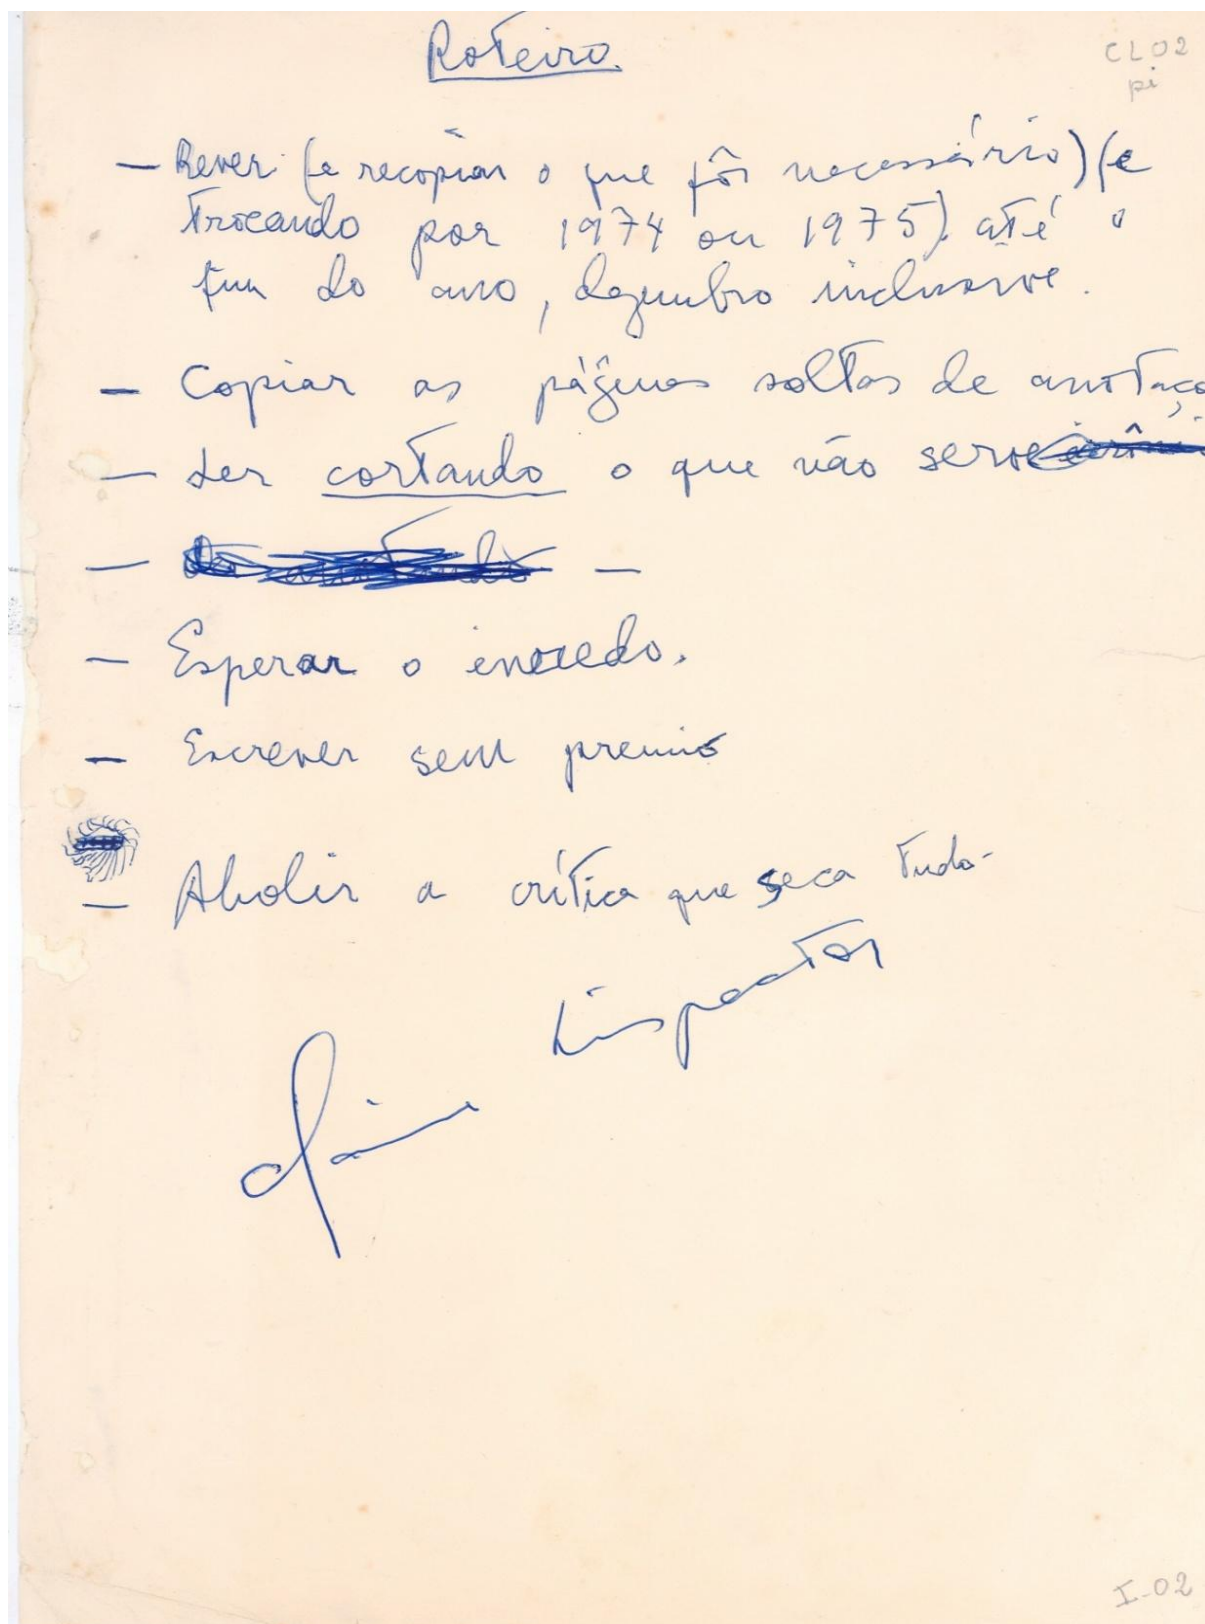 Roteiro.
CL02
pi
— Rever (e recopiar o que fôr necessário) (e
trocando por 1974 ou 1975) até o
fim do ano, dezembro inclusive.
— Copiar as páginas soltas de anotaçõ
— Ler cortando o que não serve
— —
— Esperar o enredo.
— Escrever sem premio
— Abolir a crítica que seca tudo-
Clarice Lispector
I-02